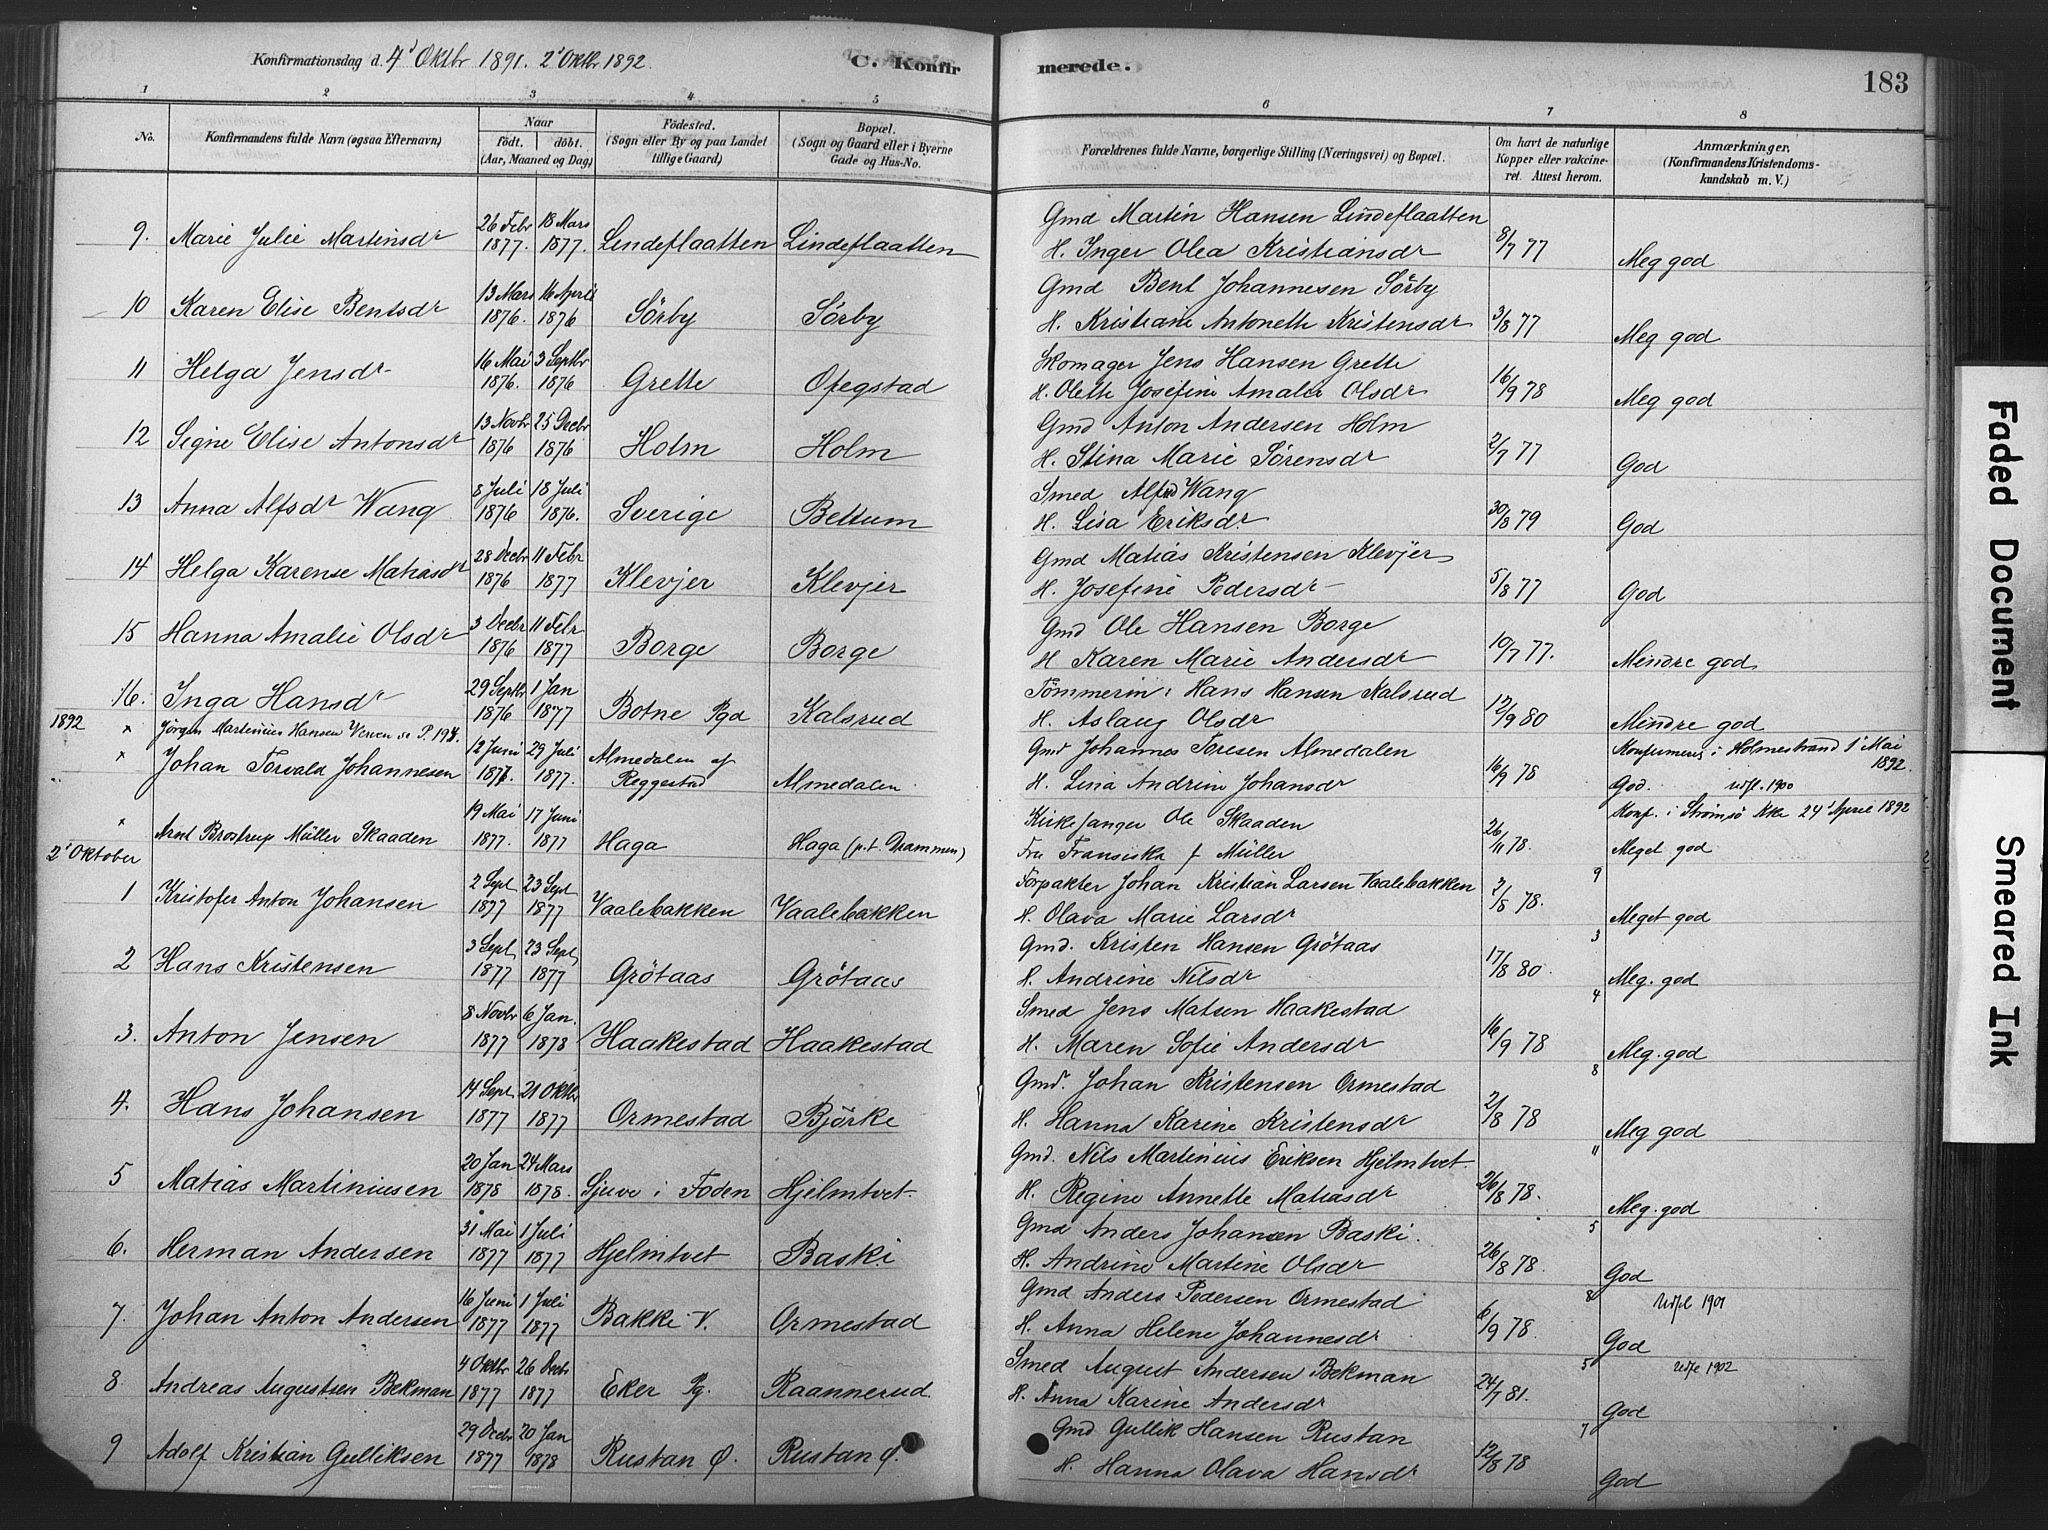 Konfirmationsdag d. 4' Oktbr 1891. 2' Oktbr 1892.
C. Konfirmerede.
183
1 2 3 4 5 6 7 8
No. Konfirmandens fulde Navn (ogsaa Efternavn) Naar født. døbt. (Aar, Maaned og Dag) Fødested. (Sogn eller By og paa Landet tillige Gaard) Bopæl. (Sogn og Gaard eller i Byerne Gade og Hus-No. Forældrenes fulde Navne, borgerlige Stilling (Næringsvei) og Bopæl. Om havt de naturlige Kopper eller vakcineret. Attest herom. Anmærkninger, (Konfirmandens Kristendomskundskab m. V.)
26 Febr 18 Mars Gmd Martin Hansen Lindeflaatten
9. Marie Julie Martinsdr 1877. 1877. Lindeflaatten Lindeflaatten H. Inger Olea Kristiansdr 8/7 77 Meg god
13 Mars 16 April Gmd Bent Johannesen Sörby
10 Karen Elise Bentsdr 1876. 1876 Sörby Sörby H. Kristiane Antonette Kristensdr 3/8 77 Meg god
16 Mai 3 Septbr Skomager Jens Hansen Grette
11 Helga Jensdr 1876. 1876 Grette Opegstad H. Olette Josefine Amalie Olsdr 16/9 78 Meg god
13 Novbr 25 Decbr Gmd Anton Andersen Holm
12 Signe Elise Antonsdr 1876 1876 Holm Holm H. Stina Marie Sörensdr 2/7 77 God
8 Juli 18 Juli Smed Alfred Wang
13 Anna Alfsdr Wang 1876 1876. Sverige Bettum H. Lisa Eriksdr 30/8 79 God
28 Decbr 11 Febr Gmd Matias Kristensen Klevjer
14 Helga Karense Matiasdr 1876 1877 Klevjer Klevjer H. Josefine Pedersdr 5/8 77 God
3 Decbr 11 Febr Gmd Ole Hansen Borge
15 Hanna Amalie Olsdr 1876 1877 Borge Borge H Karen Marie Andersdr 10/7 77. Mindre god
29 Septbr 1 Jan Tömmerm: Hans Hansen Kalsrud
16. Inga Hansdr 1876 1877 Botne Pgd Kalsrud H. Aslaug Olsdr 12/9 80 Mindre god
1892 x Jørgen Martinius Hansen Verven se P. 194.
12 Juni 29 Juli Gmd Johannes Toresen Almedalen Konfirmeres i Holmestrand 1' Mai 1892.
x Johan Torvald Johannesen 1877. 1877. Almedalen af Reggestad Almedalen H. Lina Andrine Johansdr 16/9 78 God. udfl. 1900
19 Mai 17 Juni Kirkesanger Ole Skaaden Konf. i Strømsø Kke 24' April 1892
x Arnt Brostrup Müller Skaaden 1877. 1877 Haga Haga (p.t. Drammen) Fru Fransiska f Müller 26/11 78. Meget god
2' Oktober
2 Sept 23 Sept Forpakter Johan Kristian Larsen Vaalebakken 9
1 Kristofer Anton Johansen 1877 1877 Vaalebakken Vaalebakken H. Olava Marie Larsdr 2/8 78. Meget god
3 Sept 23 Sept Gmd. Kristen Hansen Grötaas 3
2 Hans Kristensen 1877 1877 Grötaas Grötaas H. Andrine Nilsdr 17/8 80. Meg. god
8 Novbr 6 Jan. Smed Jens Matsen Haakestad 4
3. Anton Jensen 1877 1878 Haakestad Haakestad H. Maren Sofie Andersdr 16/9 78 Meg. god
14 Sept 21 Oktbr Gmd. Johan Kristensen Ormestad 8
4. Hans Johansen 1877 1877 Ormestad Björke H. Hanna Karine Kristensdr 2/8 78 Meg god
20 Jan 24 Mars Gmd. Nils Martinius Eriksen Hjelmtvet 11
5 Matias Martiniusen 1878 1878. Sjuve i Foden Hjelmtvet H. Regine Annette Matiasdr 26/8 78. Meg. god
31 Mai 1 Juli Gmd Anders Johansen Baski. 5
6. Herman Andersen 1877 1877 Hjelmtvet Baski H. Andrine Martine Olsdr 26/8 78. God
16 Juni 1 Juli Gmd Anders Pedersen Ormestad 8 Udfl 1901
7. Johan Anton Andersen 1877 1877 Bakke V. Ormestad H. Anna Helene Johannesdr 6/9 78. God
4 Oktbr 26 Decbr Smed August Andersen Bekman 5 udfl 1902
8 Andreas Augustsen Bekman 1877 1877 Eker Pg. Raannerud H. Anna Karine Andersdr 24/7 81. God
29 Decbr 20 Jan Gmd Gullik Hansen Rustan 7
9 Adolf Kristian Gulliksen 1877 1878 Rustan Ø. Rustan Ø. H. Hanna Olava Hansdr 12/8 78 God
Faded Document
Smeared Ink